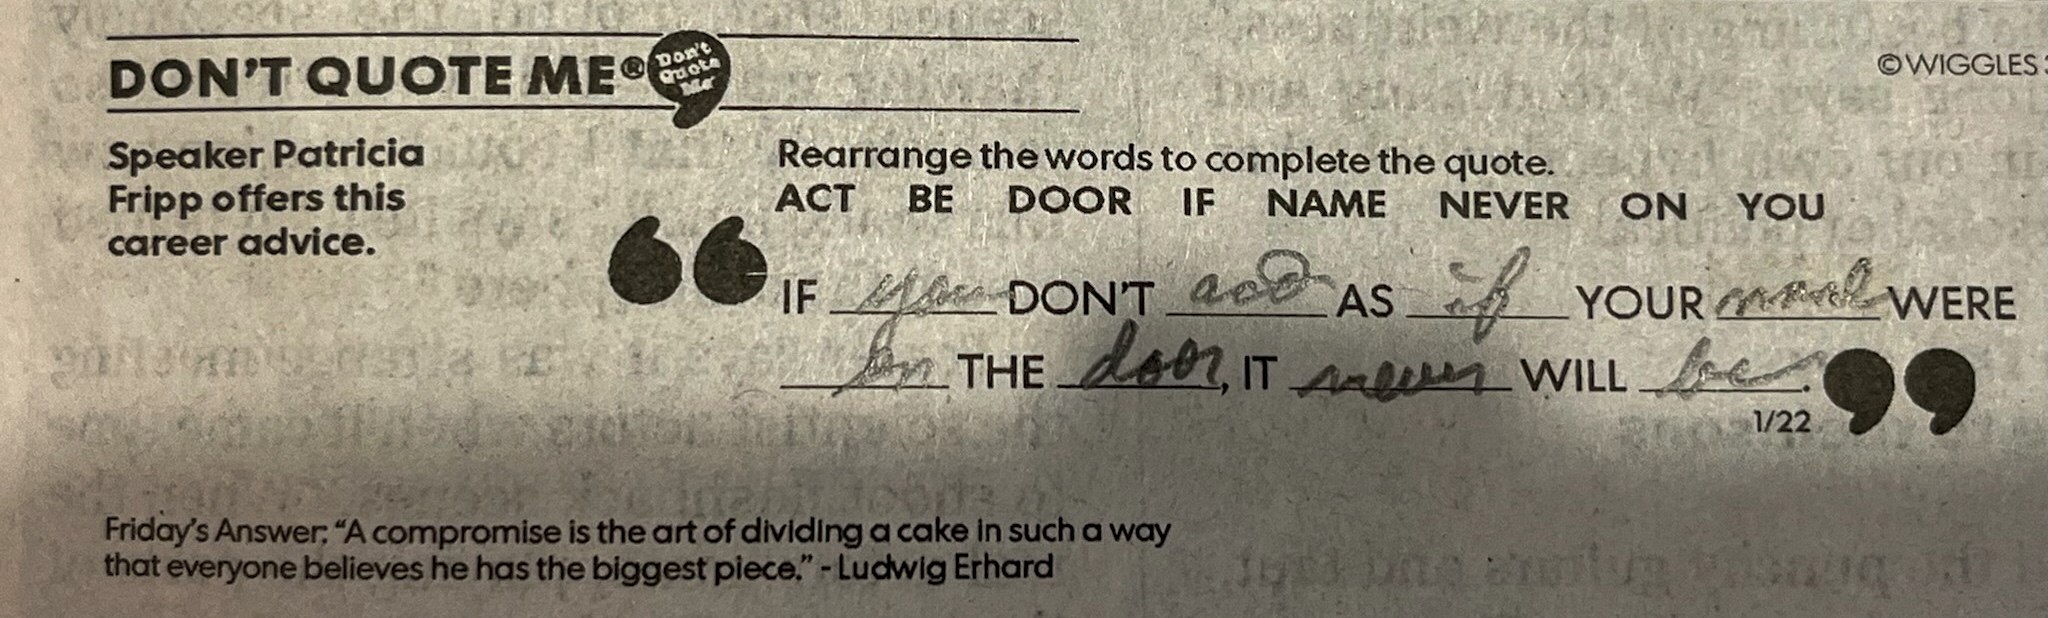 DON'T QUOTE ME®
Don't
Quote
Me
©WIGGLES 3
Speaker Patricia
Fripp offers this
career advice.
Rearrange the words to complete the quote.
ACT BE DOOR IF NAME NEVER ON YOU
“IF you DON'T AS if YOUR WERE
on THE door, IT never WILL be.”
1/22
Friday's Answer: “A compromise is the art of dividing a cake in such a way
that everyone believes he has the biggest piece.” - Ludwig Erhard